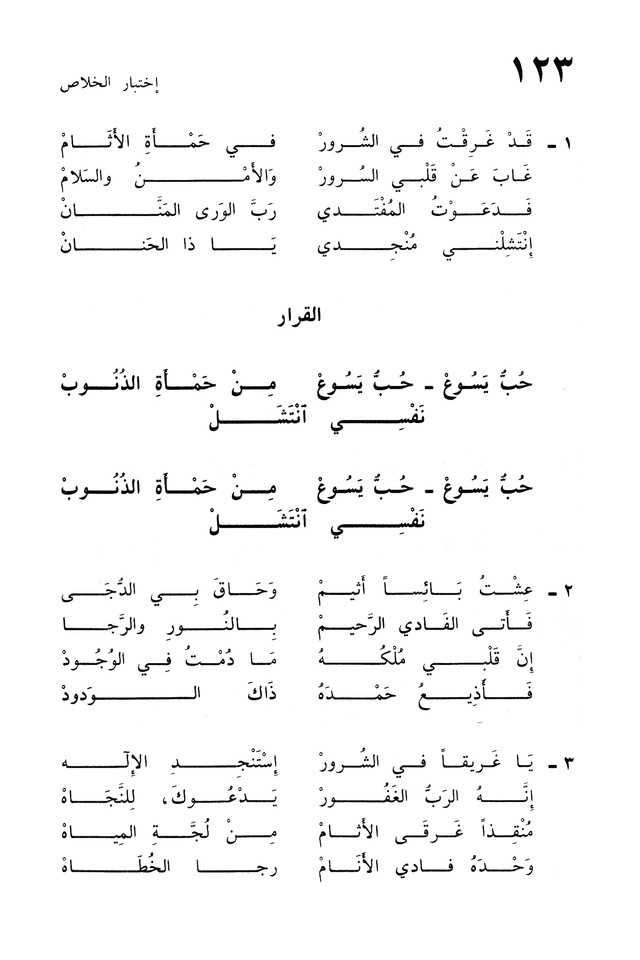 ١٢٣
إختبار الخلاص
١ ـ قَدْ غَرِقْتُ في الشُرورْ في حَمْأَةِ الأَثَامْ
غَابَ عَنْ قَلْبي السُرورْ وَالأَمْنُ والسَلامْ
فَدَعَوْتُ المُفْتَدي رَبَّ الوَرى المَنَّانْ
إنْتَشِلْني مُنْجِدي يَا ذا الحَنانْ
القرار
حُبُّ يَسُوعْ ـ حُبُّ يَسُوعْ مِنْ حَمْأَةِ الذُنُوبْ
نَفْسِي ٱنْتَشَلْ
حُبُّ يَسُوعْ ـ حُبُّ يَسُوعْ مِنْ حَمْأَةِ الذُنُوبْ
نَفْسِي ٱنْتَشَلْ
٢ ـ عِشْتُ بَائِساً أَثيمْ وَحَاقَ بِي الدُّجَى
فَأَتى الفَادي الرَّحيمْ بِالنُورِ والرَّجا
إنَّ قَلْبي مُلْكُهُ مَا دُمْتُ فِي الوُجُودْ
فَأُذِيعُ حَمْدَهُ ذَاكَ الوَدودْ
٣ ـ يَا غَريقاً في الشُرورْ إسْتَنْجِدِ الإلَه
إنَّهُ الرَبُّ الغَفُورْ يَدْعُوكَ، لِلنَّجَاهْ
مُنْقِذاً غَرقَى الأثامْ مِنْ لُجَّةِ المِياهْ
وَحْدَهُ فادي الأنَامْ رجا الخُطَاهْ